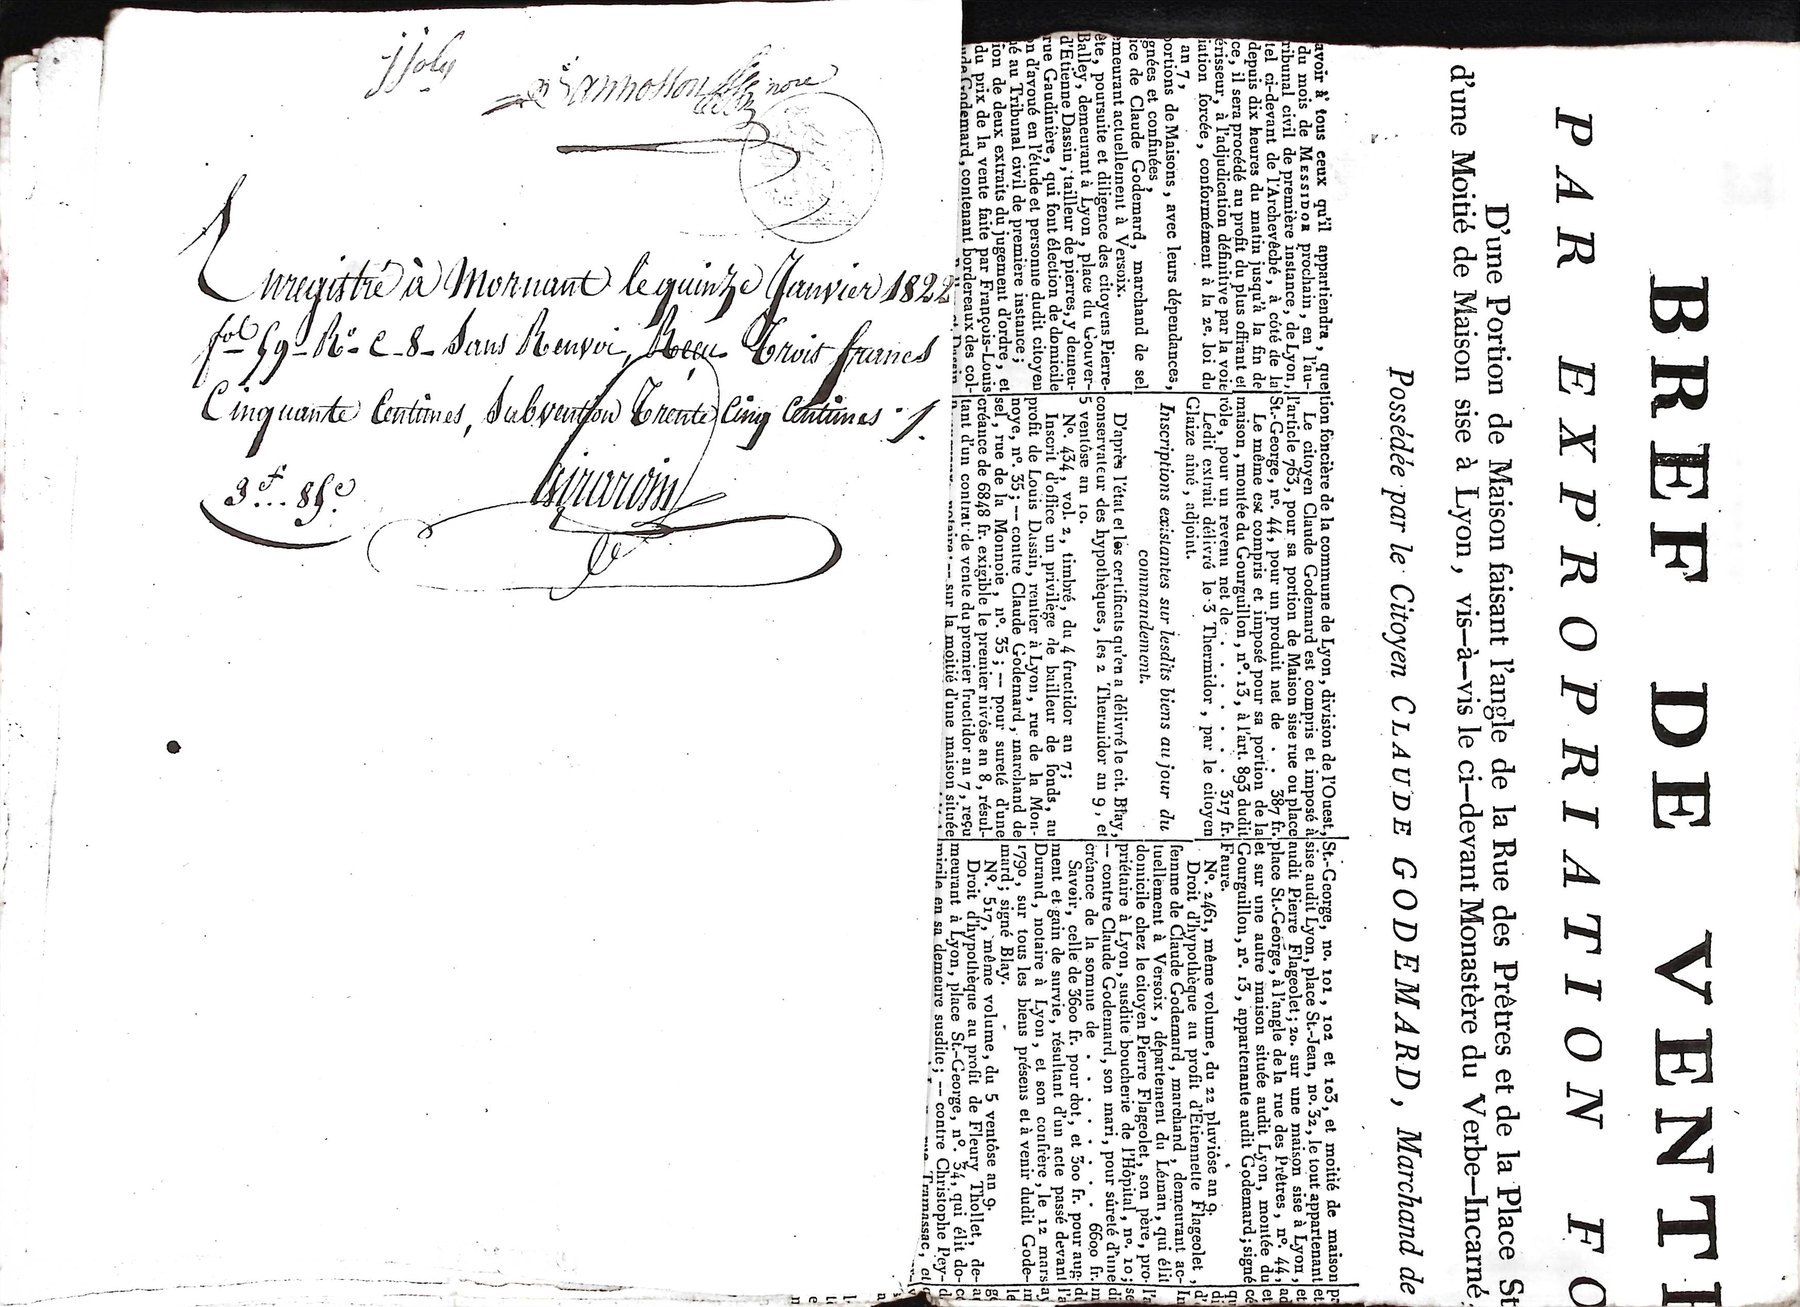 jjoly
Enregistré à Mornant le quinze Janvier 1822
fol 59 Ro c 8 Sans Renvoi, Reçu Trois francs
Cinquante Centimes, Subvention Trente Cinq Centimes
3f... 85c.
Girardin
BREF DE VENT
PAR EXPROPRIATION FO
D'une Portion de Maison faisant l'angle de la Rue des Prêtres et de la Place St
d'une Moitié de Maison sise à Lyon, vis-à-vis le ci-devant Monastère du Verbe-Incarné,
Possédée par le Citoyen CLAUDE GODEMARD, Marchand de
avoir à tous ceux qu'il appartiendra, que
du mois de MESSIDOR prochain, en l'au-
ribunal civil de première instance, de Lyon,
tel ci-devant de l'Archevêché, à côté de la
depuis dix heures du matin jusqu'à la fin de
ce, il sera procédé au profit du plus offrant et
érisseur, à l'adjudication définitive par la voie
iation forcée, conformément à la 2e. loi du
an 7,
ortions de Maisons, avec leurs dépendances,
gnées et confinées,
ice de Claude Godemard, marchand de sel
emeurant actuellement à Versoix.
ête, poursuite et diligence des citoyens Pierre-
Balley, demeurant à Lyon, place du Gouver-
d'Etienne Dassin, tailleur de pierres, y demeu-
rue Gaudinière, qui font élection de domicile
on d'avoué en l'étude et personne dudit citoyen
né au Tribunal civil de première instance;
ion de deux extraits du jugement d'ordre, et
du prix de la vente faite par François-Louis
ude Godemard, contenant bordereaux des col-
tion foncière de la commune de Lyon, division de l'Ouest,
Le citoyen Claude Godemard est compris et imposé à
l'article 763, pour sa portion de Maison sise rue ou place
St.-George, n°. 44, pour un produit net de . . 387 fr.
Le même est compris et imposé pour sa portion de la
maison, montée du Gourguillon, n°. 13, à l'art. 893 dudit
rôle, pour un revenu net de . . . . . . 317 fr.
Ledit extrait délivré le 3 Thermidor, par le citoyen
Glaize aîné, adjoint.
Inscriptions existantes sur lesdits biens au jour du
commandement.
D'après l'état et les certificats qu'en a délivré le cit. Blay,
conservateur des hypothèques, les 2 Thermidor an 9, et
5 ventôse an 10.
N°. 434, vol. 2, timbré, du 4 fructidor an 7;
Inscrit d'office un privilège de bailleur de fonds, au
profit de Louis Dassin, rentier à Lyon, rue de la Mon-
noye, n°. 35; — contre Claude Godemard, marchand de
sel, rue de la Monnoie, n°. 35; — pour sureté d'une
créance de 6848 fr. exigible le premier nivôse an 8, résul-
tant d'un contrat de vente du premier fructidor an 7, reçu
notaire; — sur la moitié d'une maison située
St.-George, no. 101, 102 et 103, et moitié de maison
sise audit Lyon, place St.-Jean, no. 32, le tout appartenant
audit Pierre Flageolet; 2o. sur une maison sise à Lyon,
place St.-George, à l'angle de la rue des Prêtres, n°. 44,
et sur une autre maison située audit Lyon, montée du
Gourguillon, n°. 13, appartenante audit Godemard; signé
Faure.
N°. 2461, même volume, du 22 pluviôse an 9.
Droit d'hypothèque au profit d'Etiennette Flageolet,
femme de Claude Godemard, marchand, demeurant ac-
tuellement à Versoix, département du Léman, qui élit
domicile chez le citoyen Pierre Flageolet, son père, pro-
priétaire à Lyon, susdite boucherie de l'Hôpital, n°. 10;
— contre Claude Godemard, son mari, pour sûreté d'une
créance de la somme de . . . . . . 6600 fr.
Savoir, celle de 3600 fr. pour dot, et 300 fr. pour aug-
ment et gain de survie, résultant d'un acte passé devant
Durand, notaire à Lyon, et son confrère, le 12 mars
1790, sur tous les biens présens et à venir dudit Gode-
mard; signé Blay.
N°. 517, même volume, du 5 ventôse an 9.
Droit d'hypothèque au profit de Fleury Thollet, de-
meurant à Lyon, place St.-George, n°. 34, qui élit do-
micile en sa demeure susdite; — contre Christophe Pey-
Tramassac,